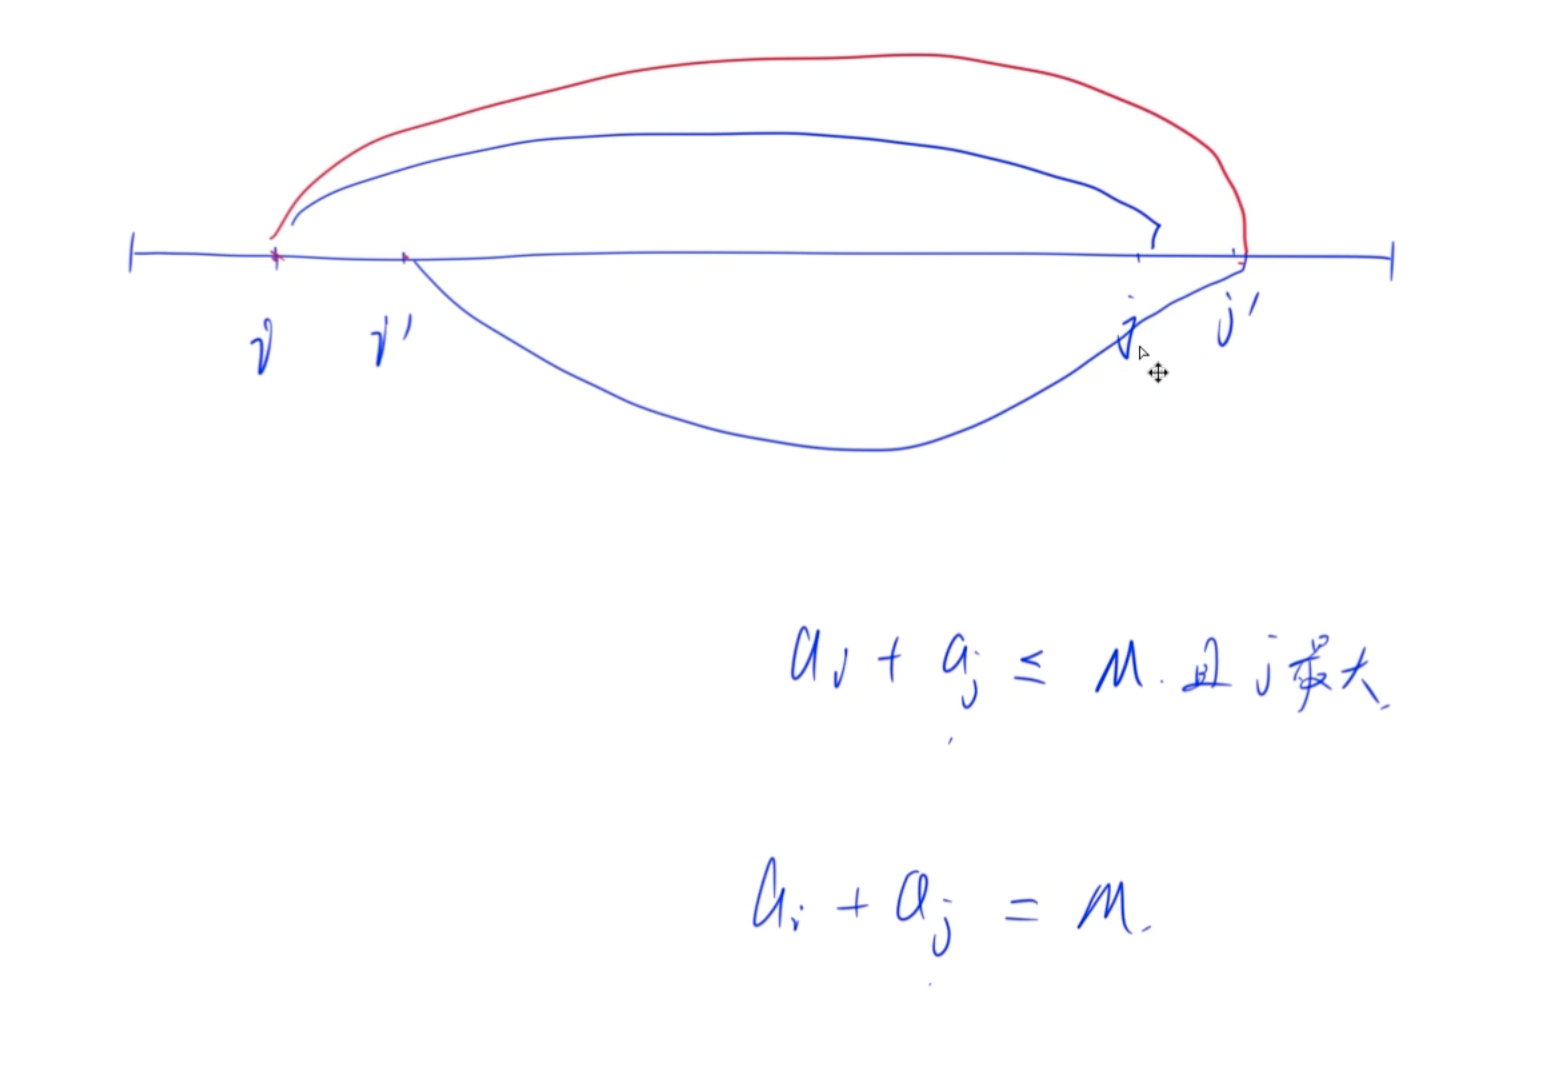 i i' j j'
ai + aj ≤ M. 且 j 最大.
ai + aj = M.